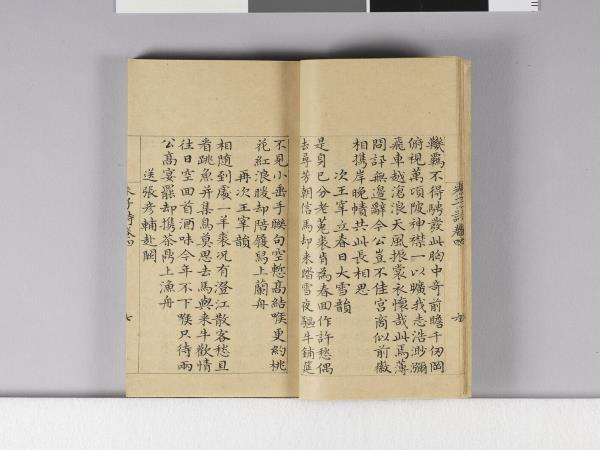 羈不得騁發此胸中奇前瞻千仞岡
俯視萬頃陂神襟一以曠我志浩渺瀰
飛車越滄浪天風振裳衣懷哉此馬薄
問訊無邊辭令公豈不佳宮商似前徽
相攜岸晚幘共此長相思
次王宰立春日大雪韻
是身已分老菟裘肯為春回作許愁偶
去尋芳朝信馬却来踏雪夜驅牛鋪筵
不見小垂手聯句空慙高結喉更約桃
花紅浪暖却陪鑊舄上蘭舟
再次王宰韻
相隨到處一羊裘况有澄江散客愁且
看跳魚并集鳥莫思去馬與来牛歡情
往日空回首酒味今年不下喉只待兩
公高宴罷却攜茶鼎上漁舟
送張彦輔赴闕